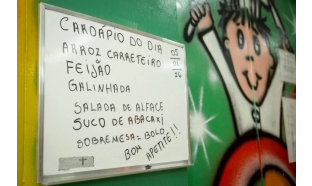 CARDÁPIO DO DIA
ARROZ CARRETEIRO
FEIJÃO
GALINHADA
SALADA DE ALFACE
SUCO DE ABACAXI
SOBREMESA = BOLO
BOM APETITE!!